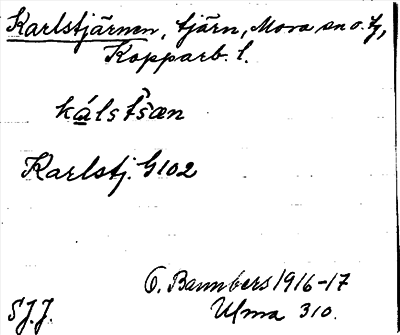 Karlstjärnen, tjärn, Mora sn o. tg,
Kopparb. l.
kálstšæn
Karlstj. G102
O. Bannbers 1916-17
SJJ. Ulma 310.